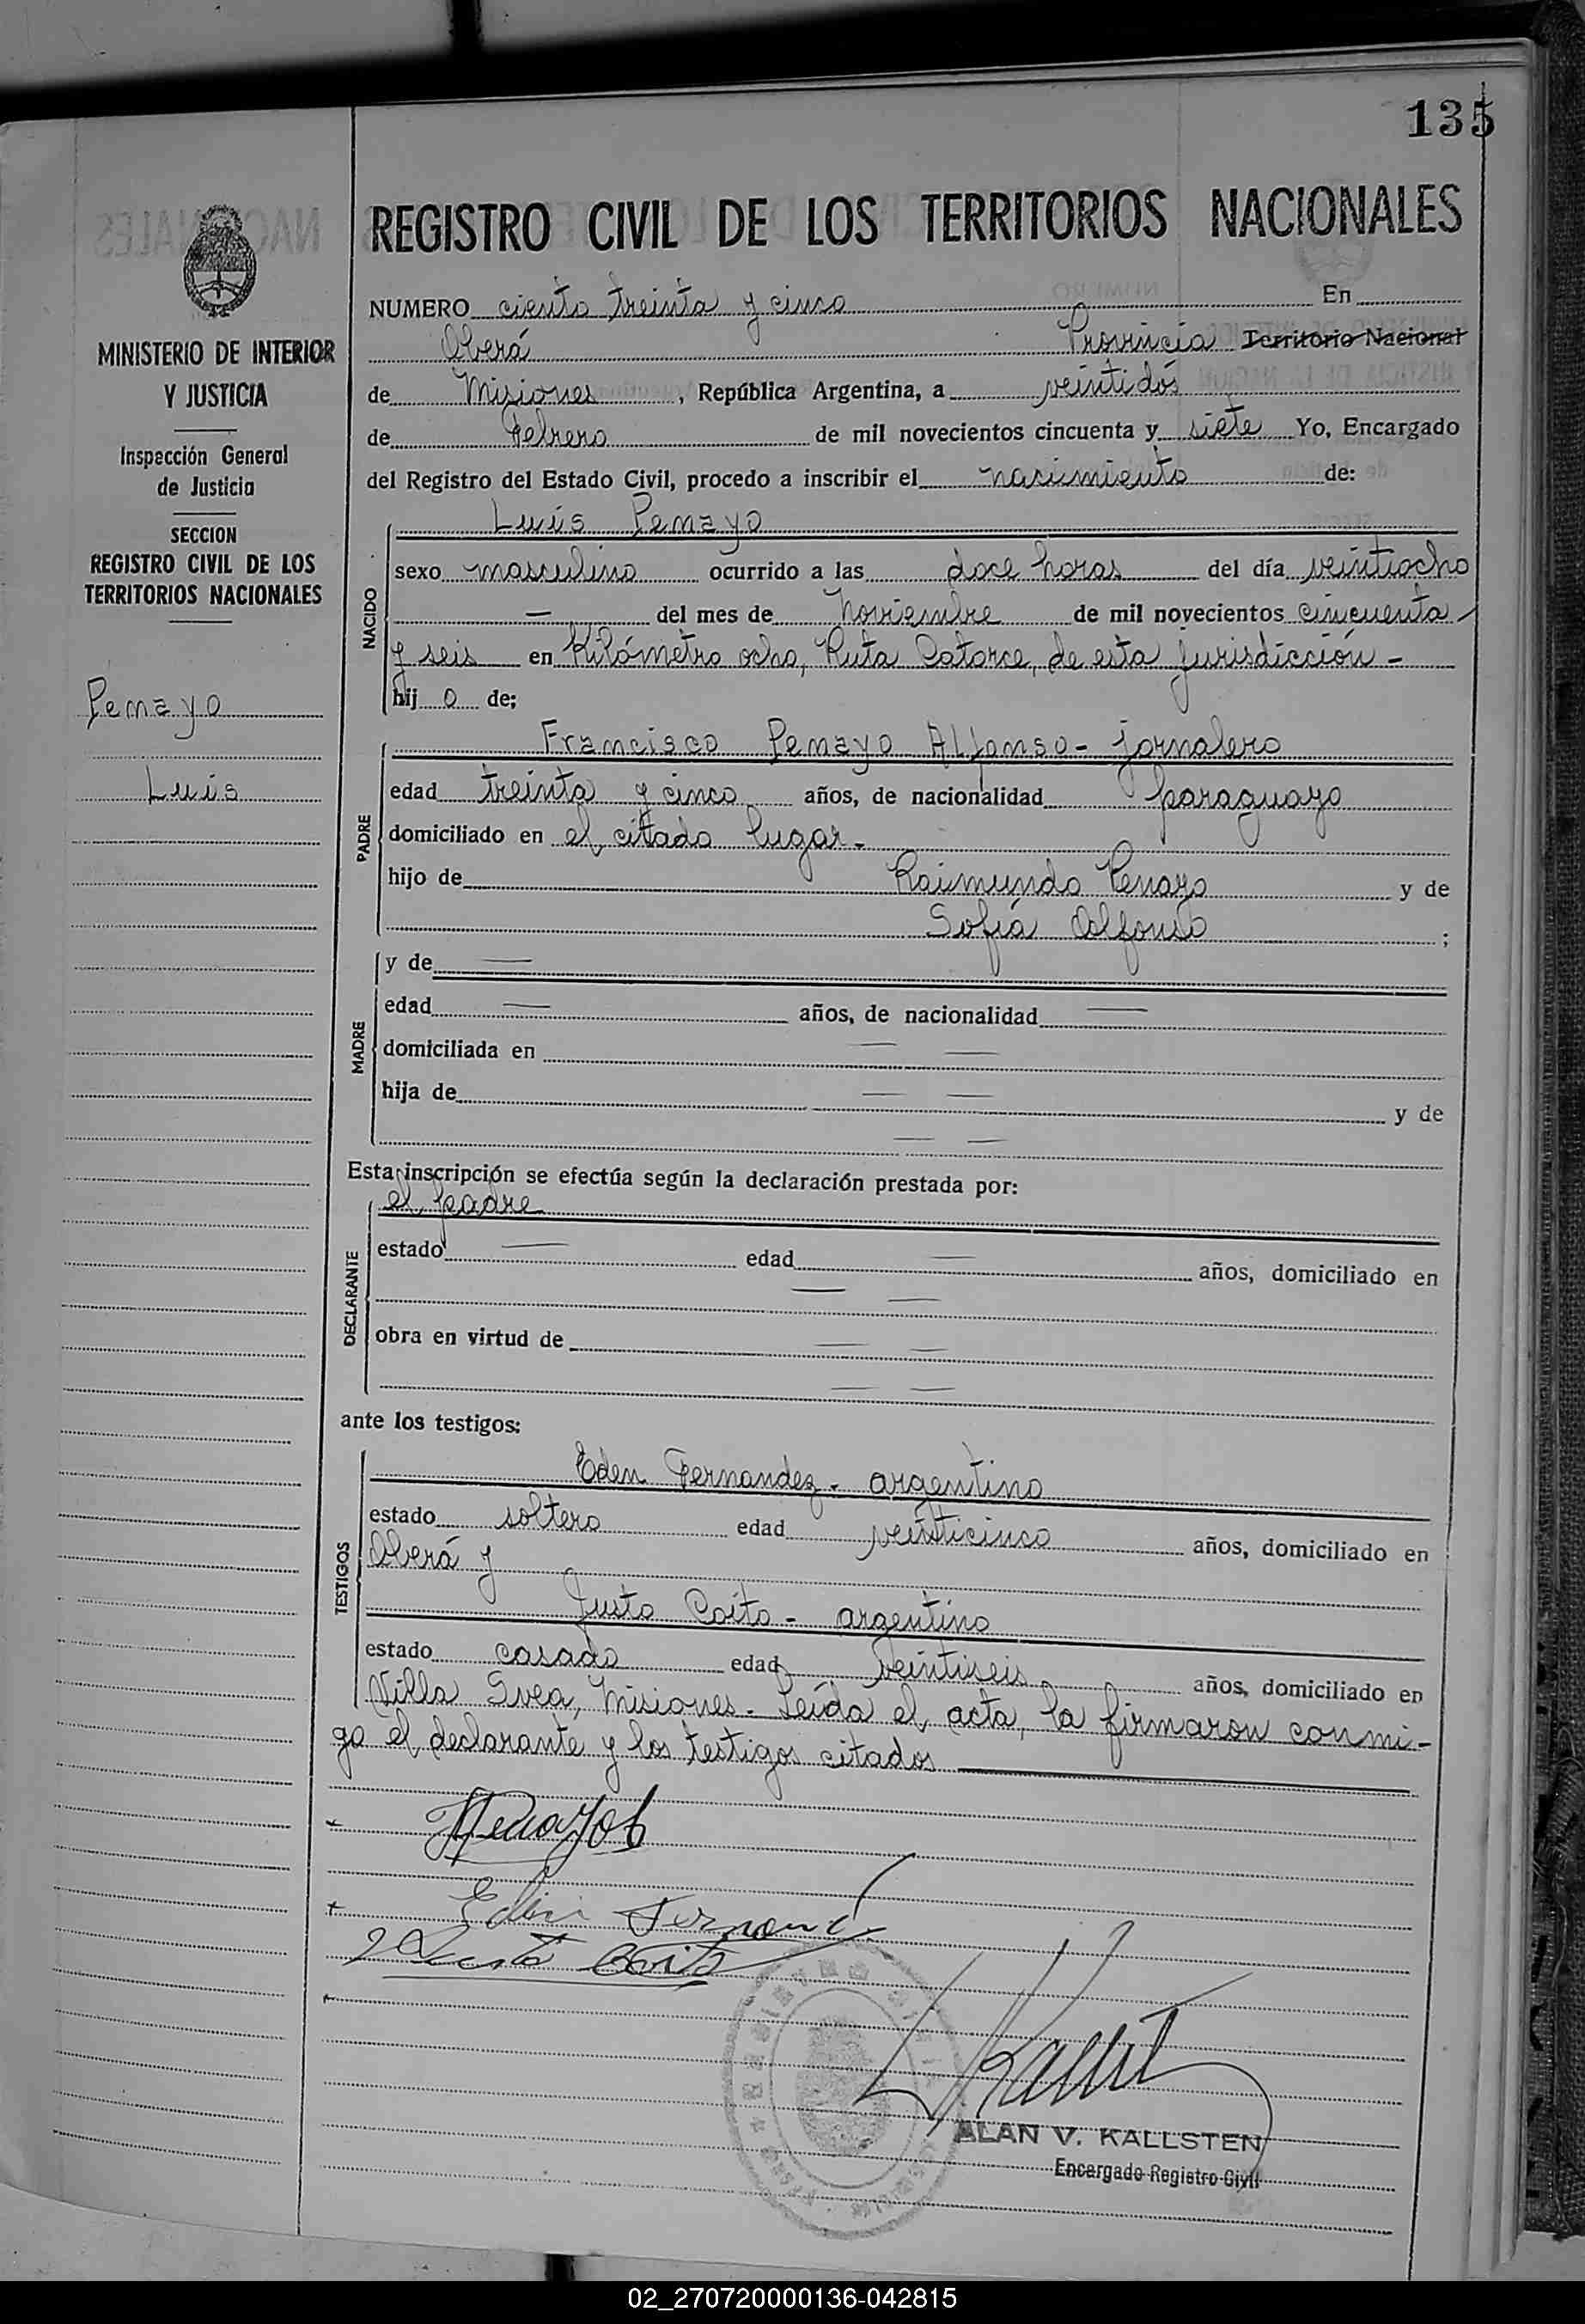 135
REGISTRO CIVIL DE LOS TERRITORIOS NACIONALES
MINISTERIO DE INTERIOR
Y JUSTICIA
Inspección General
de Justicia
SECCION
REGISTRO CIVIL DE LOS
TERRITORIOS NACIONALES
Penayo
Luis
NUMERO ciento treinta y cinco En
Oberá Provincia Territorio Nacional
de Misiones, República Argentina, a veintidós
de Febrero de mil novecientos cincuenta y siete Yo, Encargado
del Registro del Estado Civil, procedo a inscribir el nacimiento de:
NACIDO
Luis Penayo
sexo masculino ocurrido a las doce horas del día veintiocho
— del mes de Noviembre de mil novecientos cincuenta
y seis en Kilómetro ocho, Ruta Catorce, de esta jurisdicción -
hij o de;
PADRE
Francisco Penayo Alfonso - jornalero
edad treinta y cinco años, de nacionalidad paraguayo
domiciliado en el citado lugar -
hijo de Raimundo Penayo y de
Sofía Alfonso ;
MADRE
y de —
edad — años, de nacionalidad —
domiciliada en — —
hija de — — y de
— —
Esta inscripción se efectúa según la declaración prestada por:
DECLARANTE
el padre
estado — edad — años, domiciliado en
— —
obra en virtud de — —
— —
ante los testigos:
TESTIGOS
Eden Fernandez - argentino
estado soltero edad veinticinco años, domiciliado en
Oberá y
Justo Coito - argentino
estado casado edad veintiseis años, domiciliado en
Villa Svea, Misiones - Leída el acta, la firmaron conmi-
go el declarante y los testigos citados
Eden Fernand
Justo Coito
ALAN V. KALLSTEN
Encargado Registro Civil
02_270720000136-042815